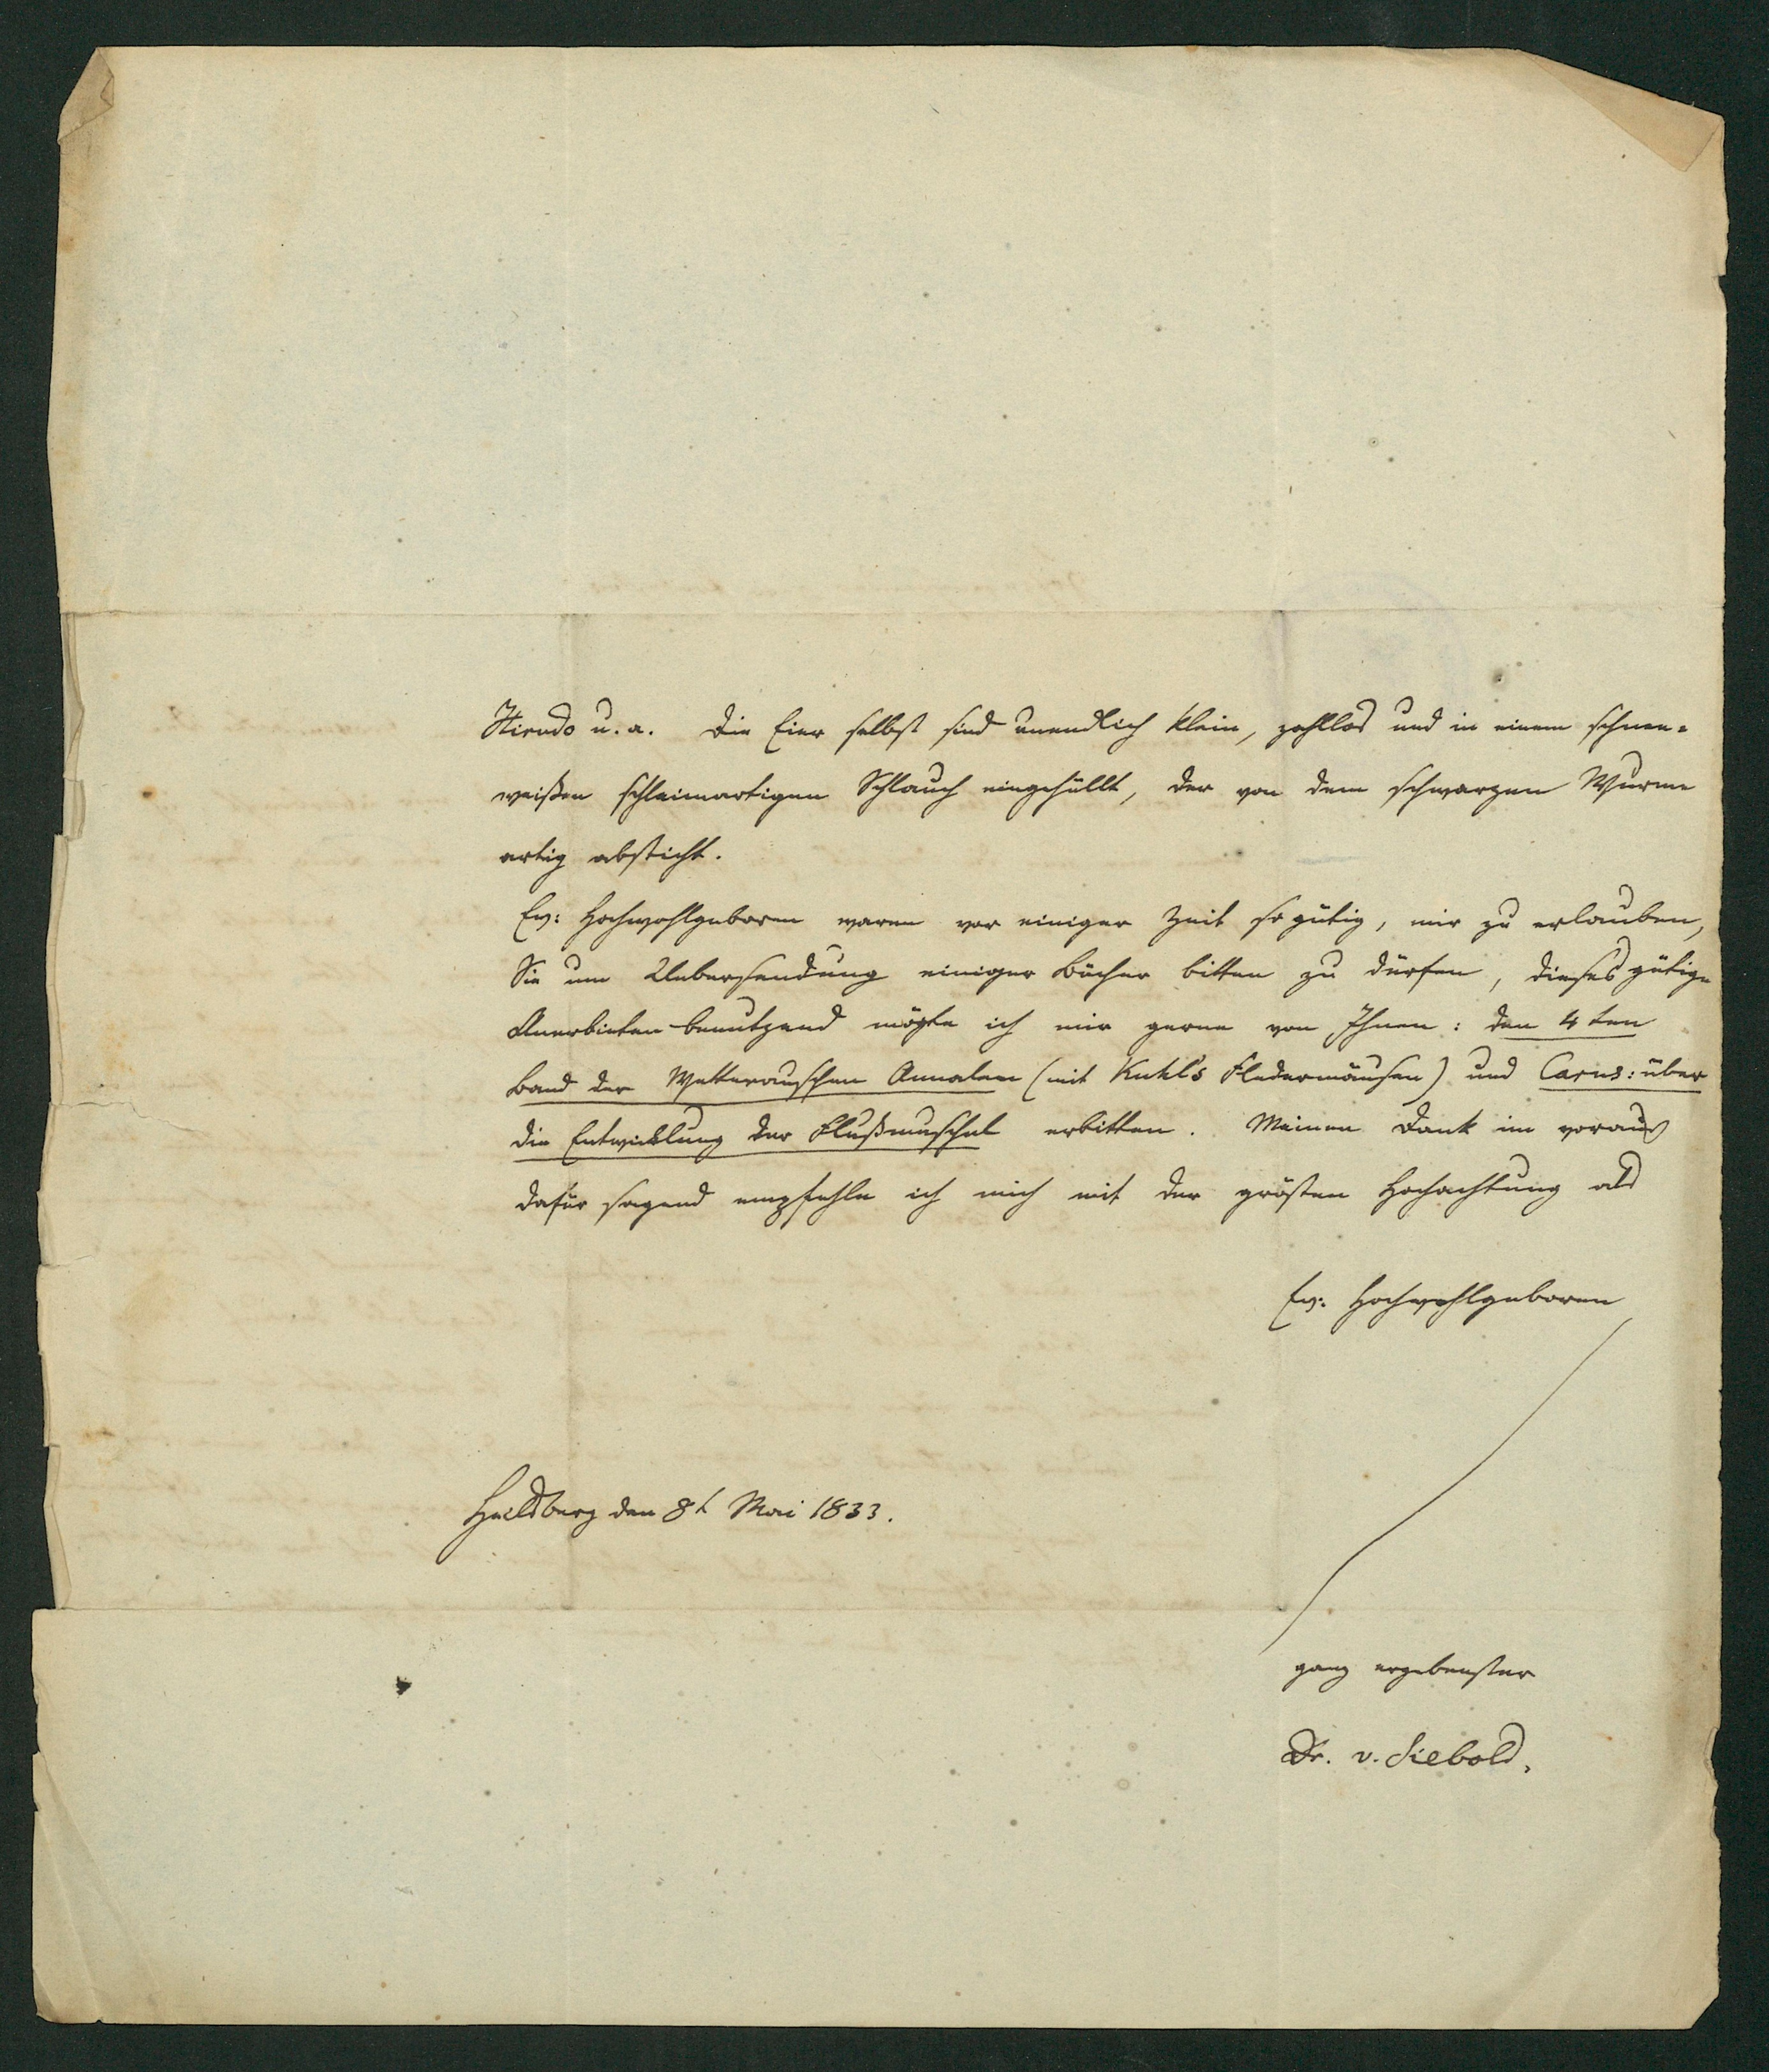 Hirudo u. a. Die Eier selbst sind unendlich klein, zahllos und in einem schnee-
weißen schleimartigen Schlauch eingehüllt, der von dem schwarzen Wurme
artig absticht.
Ew: Hochwohlgeboren waren vor einiger Zeit so gütig, mir zu erlauben,
Sie um Uebersendung einiger Bücher bitten zu dürfen, dieses gütige
Anerbieten benutzend mögte ich mir gerne von Ihnen: den 4ten
Band der Wetterauschen Annalen (mit Kuhl's Fledermäusen) und Carus: über
die Entwicklung der Flußmuschel erbitten. Meinen Dank im voraus
dafür sagend empfehle ich mich mit der grösten Hochachtung als
Ew: Hochwohlgeboren
Heilsberg den 8t Mai 1833.
ganz ergebenster
Dr. v. Siebold.